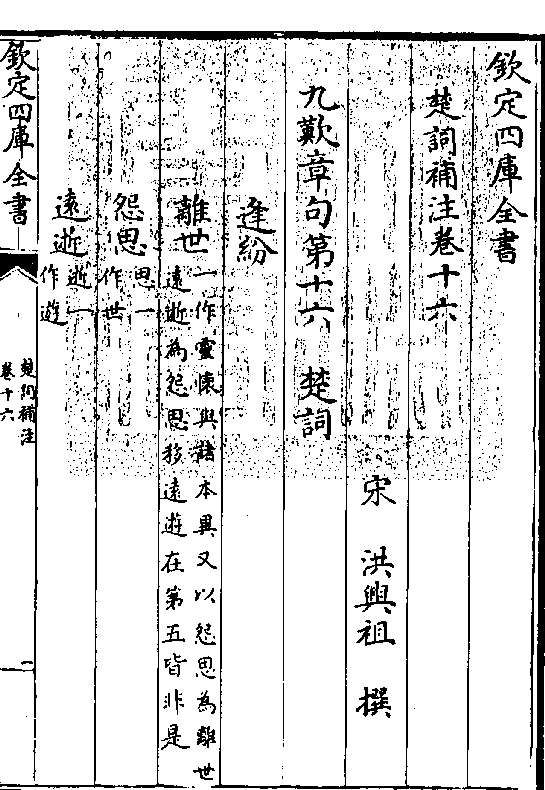 欽定四庫全書
楚詞補注卷十六
宋 洪興祖 撰
九歎章句第十六 楚詞
逢紛
離世一作靈懷與諸本異又以怨思為離世
遠逝為怨思移遠遊在第五皆非是
怨思思一
作世
遠逝逝一
作遊
欽定四庫全書
楚詞補注
卷十六
一